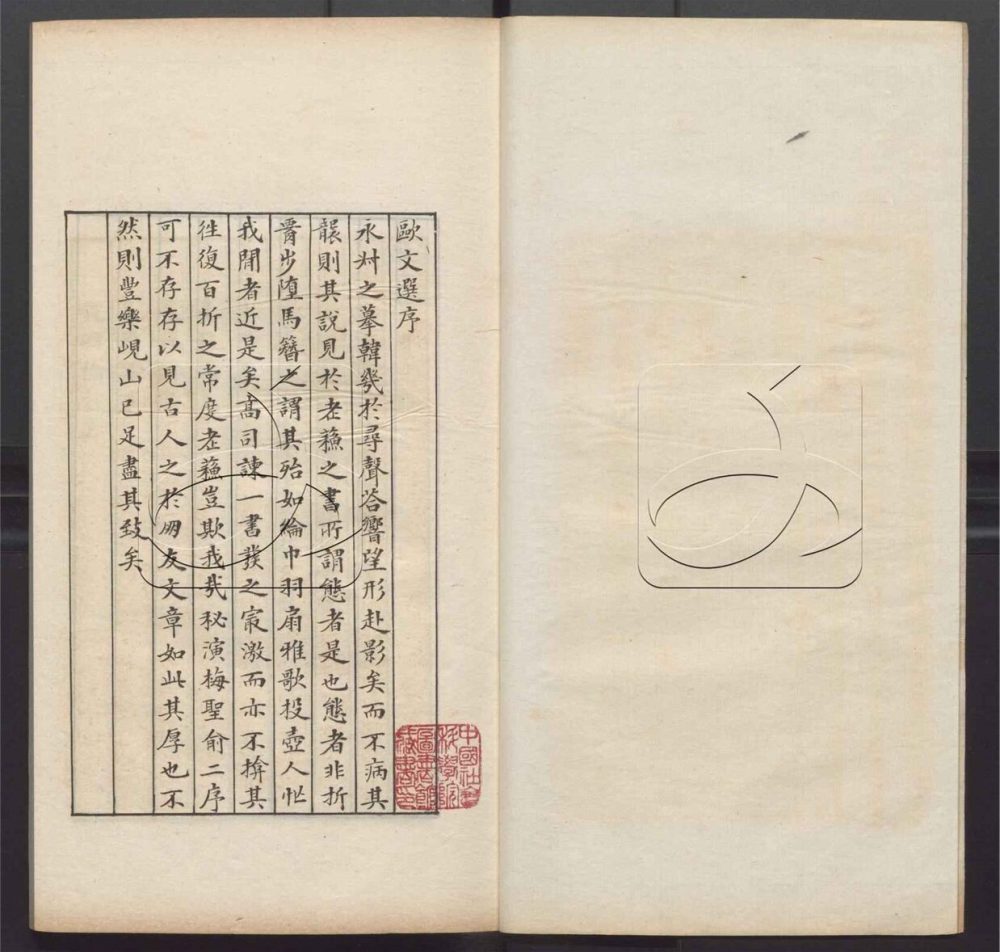 歐文選序
永州之摹韓幾於尋聲答響望形赴影矣而不病其
襲則其說見於老蘓之書所謂態者是也態者非折
脣步墮馬簪之謂其殆如綸巾羽扇雅歌投壺人忙
我閒者近是矣高司諫一書發之㝡激而亦不揜其
徃復百折之常度老蘓豈欺我㢤秘演梅聖俞二序
可不存存以見古人之於朋友文章如此其厚也不
然則豐樂峴山已足盡其致矣
中國社會
科學院
圖書館
藏書印